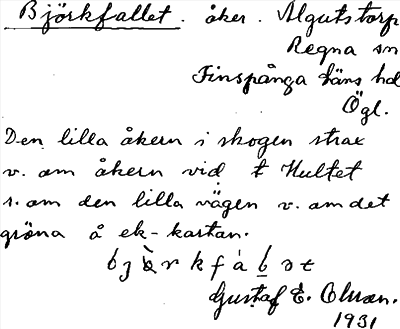 Björkfallet. åker. Algutstorp
Regna sn
Finspånga läns hd
Ögl.
Den lilla åkern i skogen strax
v. om åkern vid t Hultet
s. om den lilla vägen v. om det
gröna å ek-kartan.
Gustaf E. Olsson.
1931